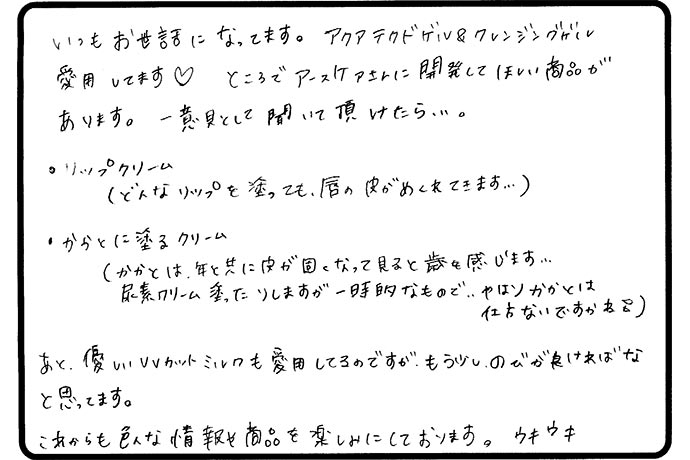 いつもお世話になってます。 アクアテクドゲル&クレンジングゲル
愛用してます♡ ところでアースケアさんに開発してほしい商品が
あります。 一意見として聞いて頂けたら…。
・リップクリーム
(どんなリップを塗っても、唇の皮がめくれてきます…)
・かかとに塗るクリーム
(かかとは、年と共に皮が固くなって見ると歳を感じます…
尿素クリーム塗ったりしますが一時的なもので‥やはりかかとは
仕方ないですかね)
あと、優しいUVカットミルクも愛用してるのですが、もう少し、のびが良ければな
と思ってます。
これからも色んな情報や商品を楽しみにしております。 ウキウキ